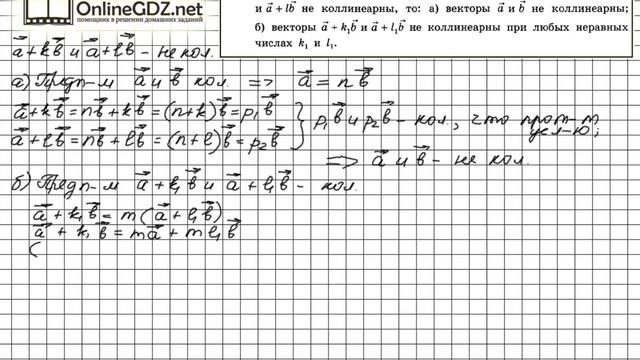 OnlineGDZ.net
помощник в решении домашних заданий
и a⃗ + lb⃗ не коллинеарны, то: а) векторы a⃗ и b⃗ не коллинеарны;
б) векторы a⃗ + k₁b⃗ и a⃗ + l₁b⃗ не коллинеарны при любых неравных
числах k₁ и l₁.
a⃗+kb⃗ и a⃗+lb⃗ - не кол.
а) Предп-м a⃗ и b⃗ кол. => a⃗ = nb⃗
a⃗+kb⃗ = nb⃗+kb⃗ = (n+k)b⃗ = p₁b⃗
a⃗+lb⃗ = nb⃗+lb⃗ = (n+l)b⃗ = p₂b⃗
} p₁b⃗ и p₂b⃗ - кол., что прот-т
усл-ю;
=> a⃗ и b⃗ - не кол.
б) Предп-м a⃗+k₁b⃗ и a⃗+l₁b⃗ - кол.
a⃗ + k₁b⃗ = m(a⃗+l₁b⃗)
a⃗ + k₁b⃗ = ma⃗ + ml₁b⃗
(